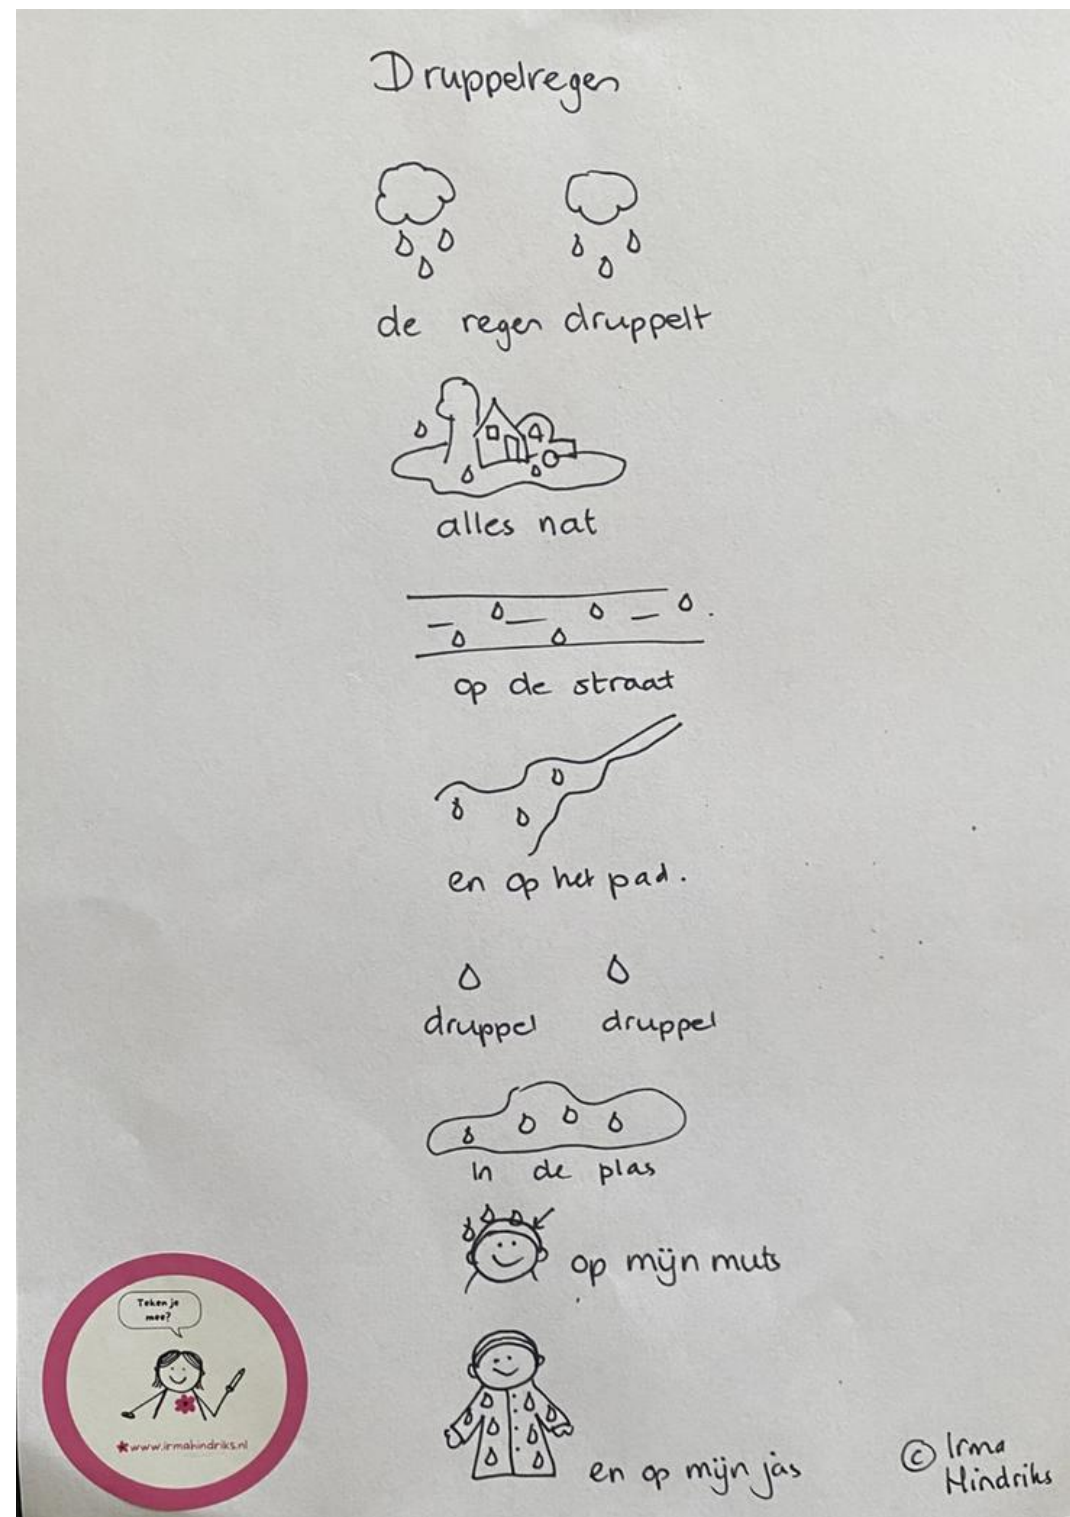 Druppelregen
de regen druppelt
alles nat
op de straat
en op het pad.
druppel druppel
in de plas
op mijn muts
en op mijn jas
Teken je
mee?
www.irmahindriks.nl
© Irma
Hindriks